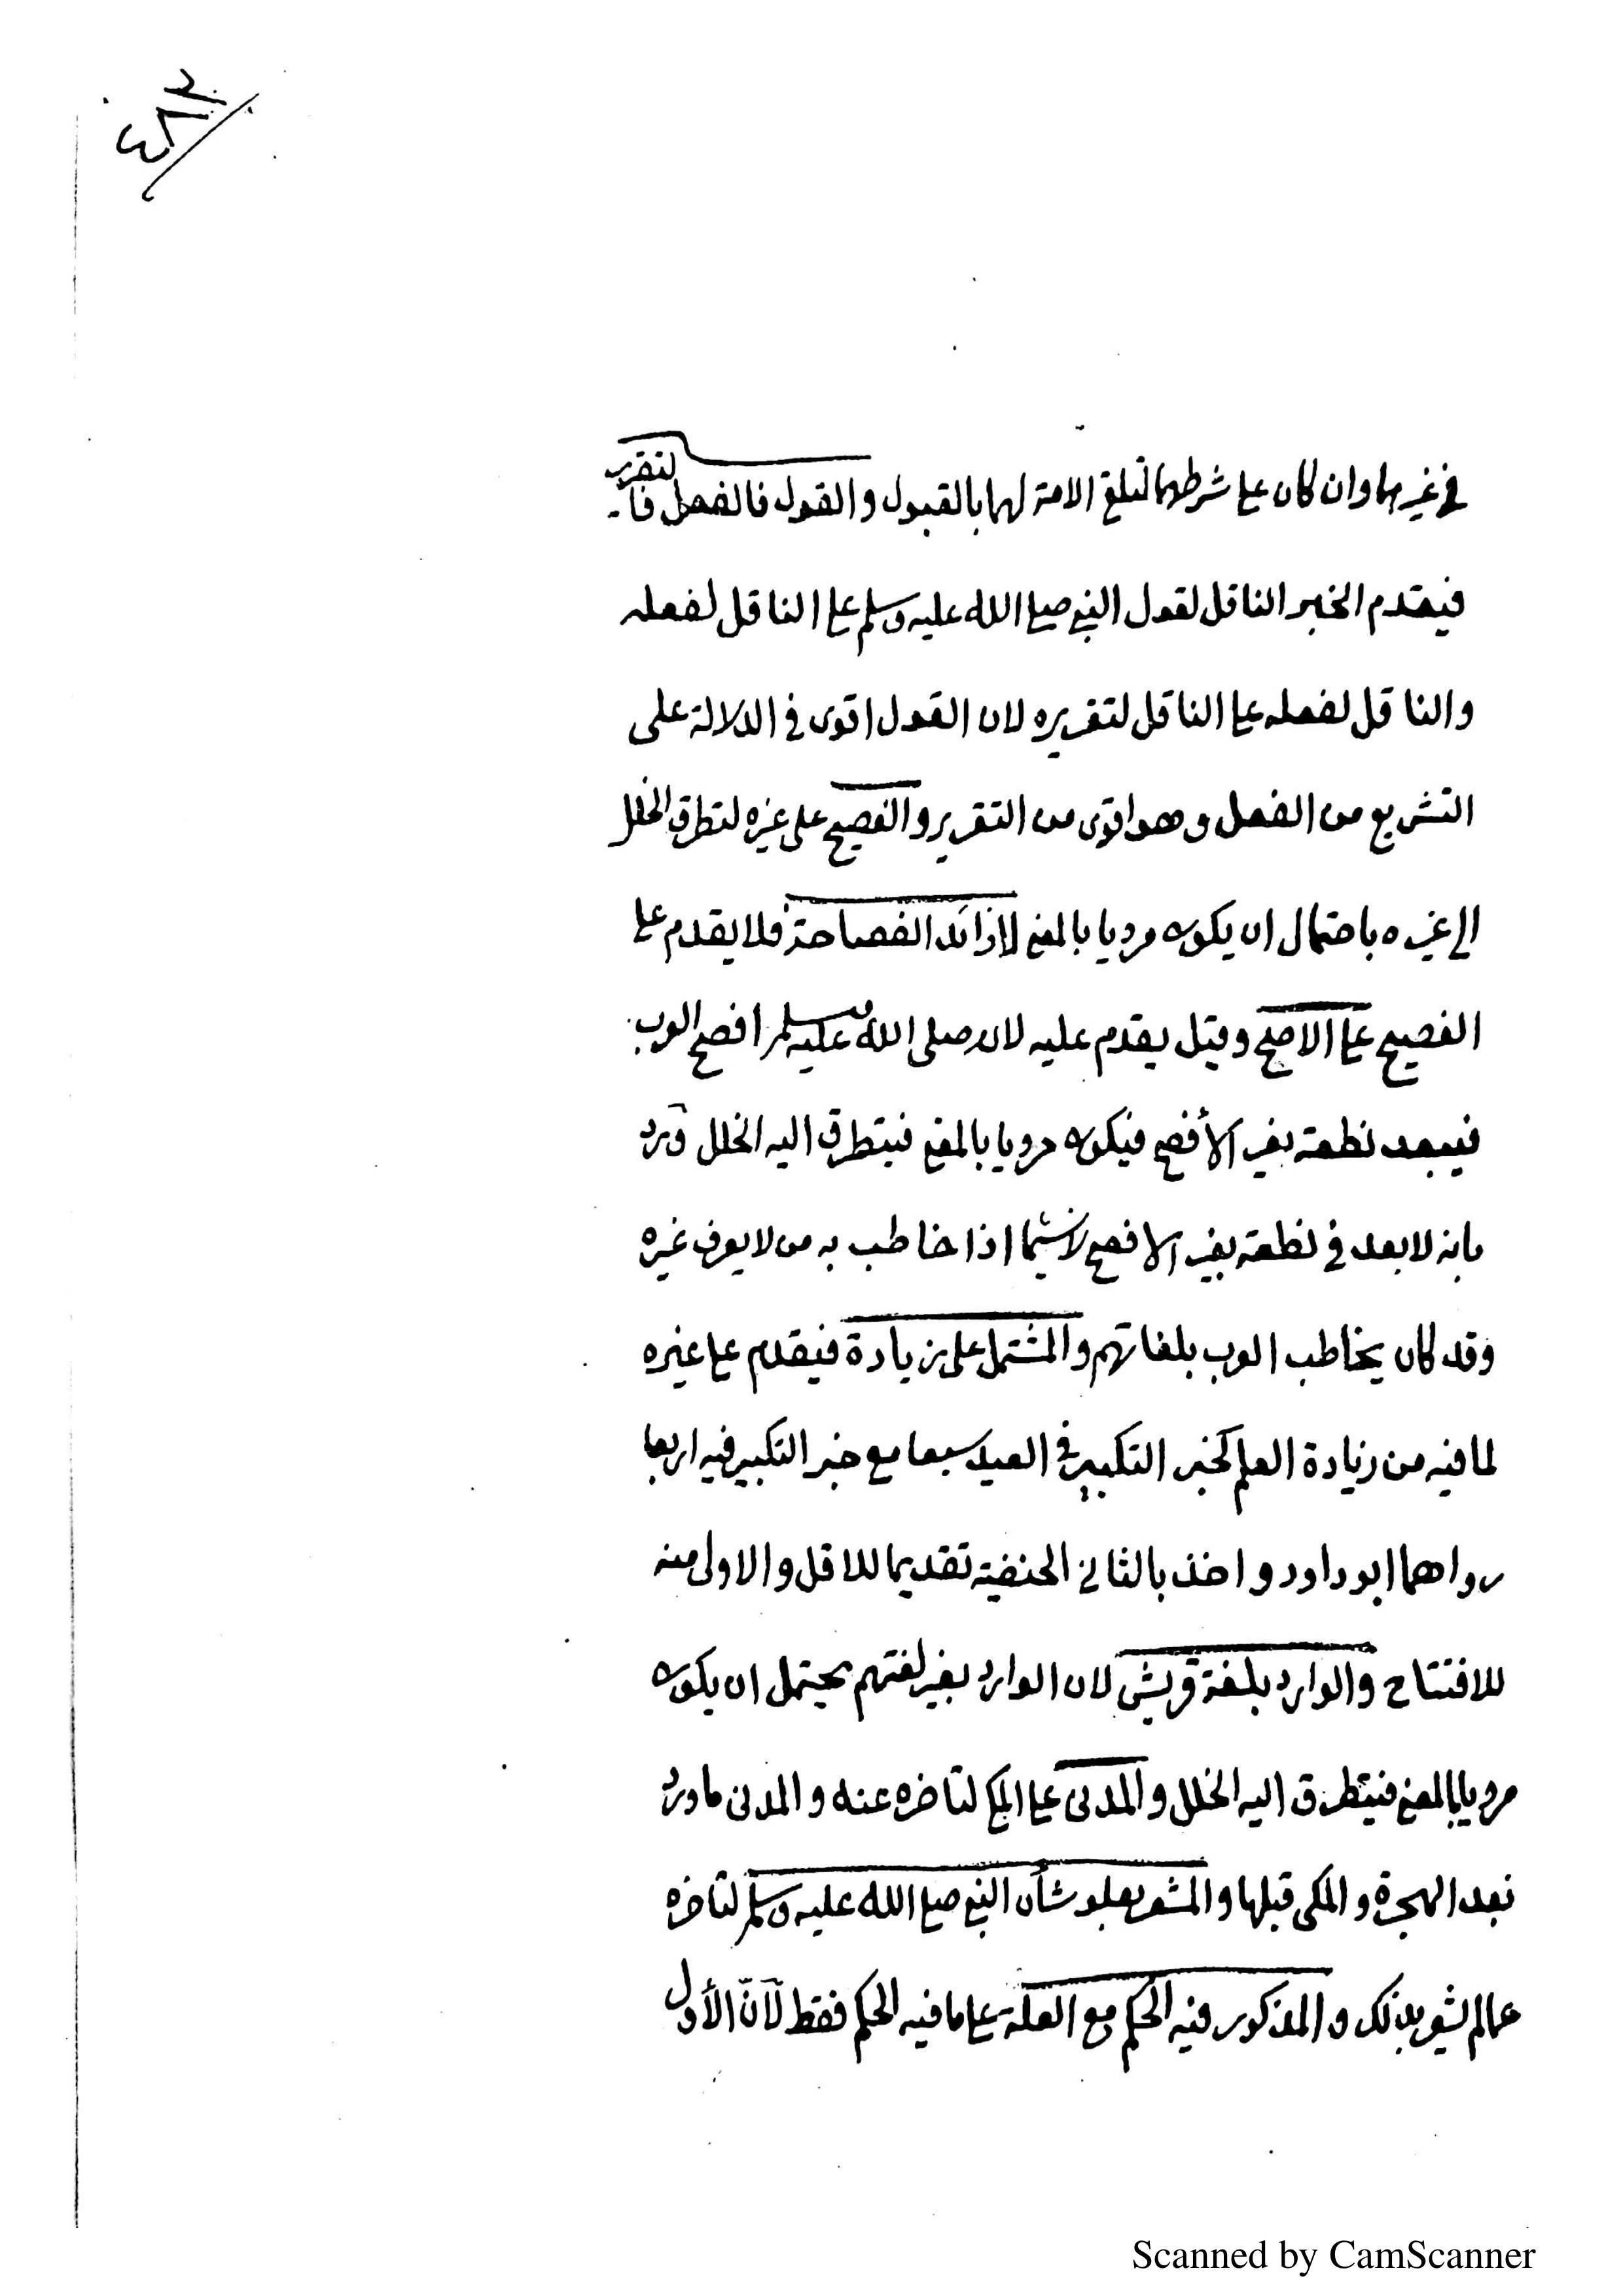 ٤٨٢
في غيرهما وان كان على شرطهما لتلقي الامة لهما بالقبول والقول فالفعل فالتقرير
فيقدم الخبر الناقل لقول النبي صلى الله عليه وسلم على الناقل لفعله
والناقل لفعله على الناقل لتقريره لان القول اقوى في الدلالة على
التشريع من الفعل وهو اقوى من التقرير والفصيح على غيره لتطرق الخلل
الى غيره باحتمال ان يكون مرويا بالمعنى لا زائد الفصاحة فلا يقدم على
الفصيح على الاصح وقيل يقدم عليه لانه صلى الله عليه وسلم افصح العرب
فيبعد نطقه بغير الأفصح فيكون مرويا بالمعنى فيتطرق اليه الخلل ورد
بانه لا بعد في نطقه بغير الافصح لاسيما اذا خاطب به من لا يعرف غيره
وقد كان يخاطب العرب بلغاتهم والمشتمل على زيادة فيقدم على غيره
لما فيه من زيادة العلم كخبر التكبير في العيد سبعا مع خبر التكبير فيه اربعا
رواهما ابو داود واخذ بالثاني الحنفية تقديما للاقل والاولى منه
للافتتاح والوارد بلغة قريش لان الوارد بغير لغتهم يحتمل ان يكون
مرويا بالمعنى فيتطرق اليه الخلل والمدني على المكي لتاخره عنه والمدني ما ورد
بعد الهجرة والمكي قبلها والمشعر بعلو شأن النبي صلى الله عليه وسلم لتاخره
عما لم يشعر بذلك والمذكور فيه الحكم مع العلة على ما فيه الحكم فقط لأنّ الأول
Scanned by CamScanner